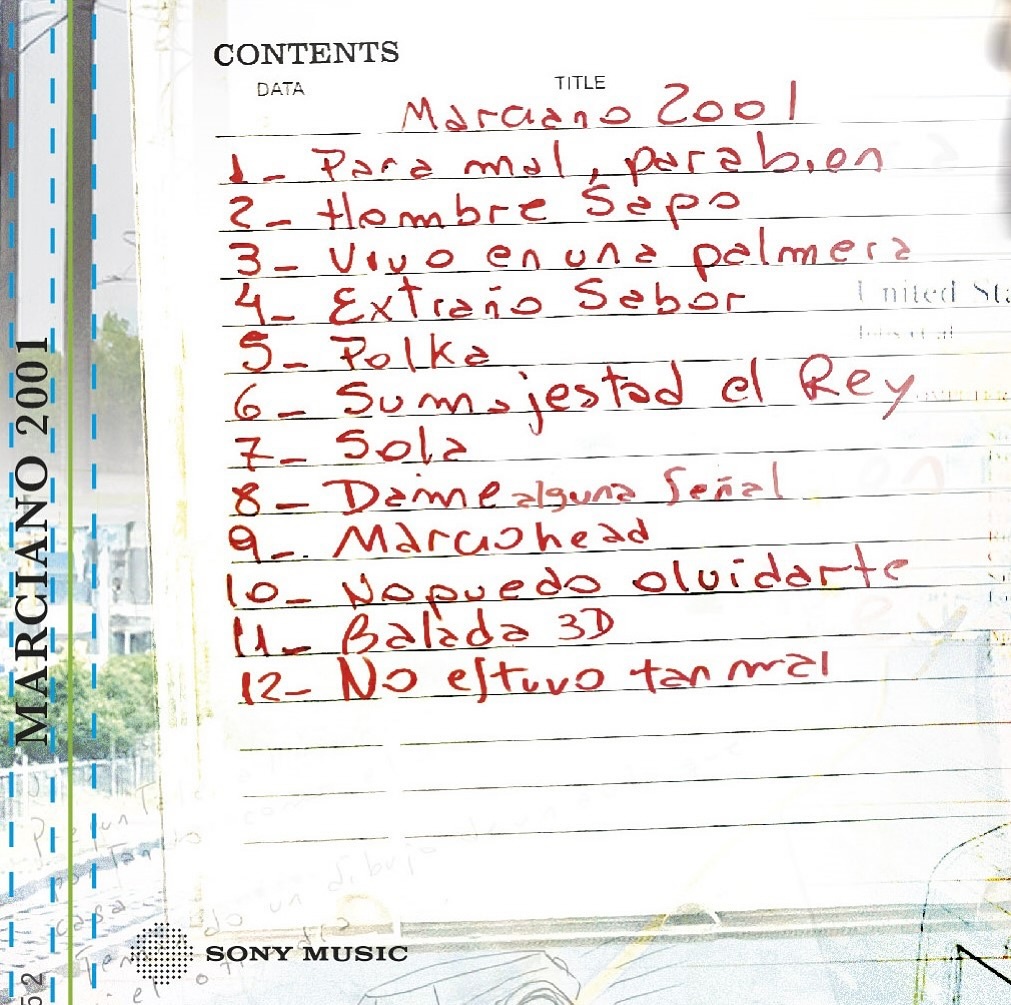 CONTENTS
DATA TITLE
Marciano 2001
1- Para mal, para bien
2- Hombre Sapo
3- Vivo en una palmera
4- Extraño Sabor
5- Polka
6- Su majestad el Rey
7- Sola
8- Dame alguna Señal
9- Marciohead
10- No puedo olvidarte
11- Balada 3D
12- No estuvo tan mal
MARCIANO 2001
United Sta
SONY MUSIC
52